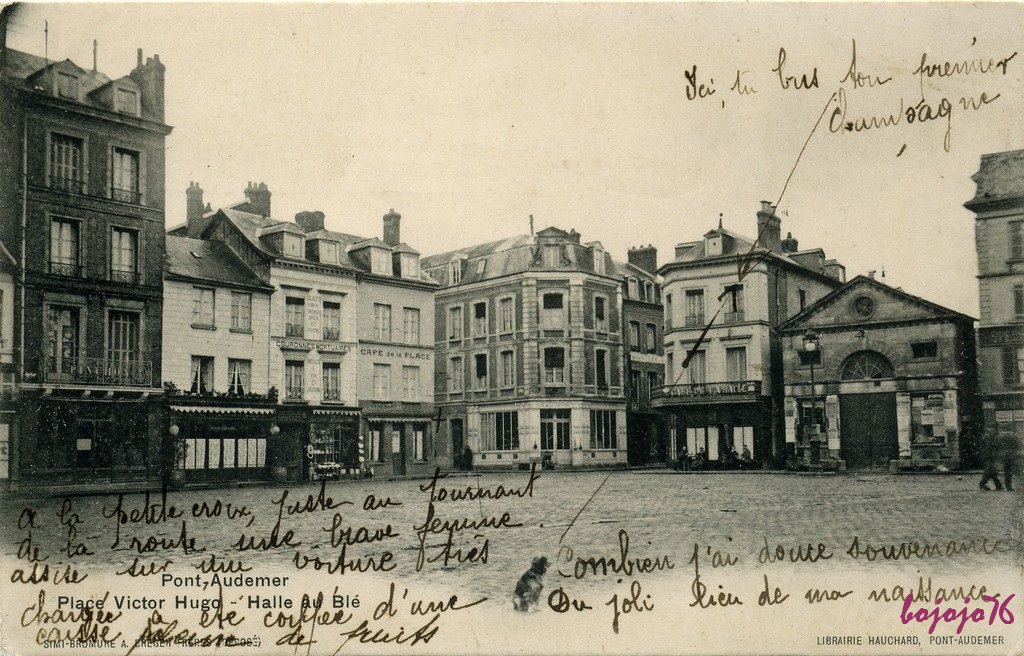 Ici, tu bus ton premier
champagne
COURONNES MORTUAIRES
CAFÉ de la PLACE
à la petite croix, juste au tournant
de la route une brave femme
assise sur une voiture très
chargée a été coiffée d'une
caisse pleine de fruits
Combien j'ai douce souvenance
Du joli lieu de ma naissance
Pont-Audemer
Place Victor Hugo - Halle au Blé
SIMI-BROMURE A. BREGER FRÈRES
LIBRAIRIE HAUCHARD, PONT-AUDEMER
bojojo76